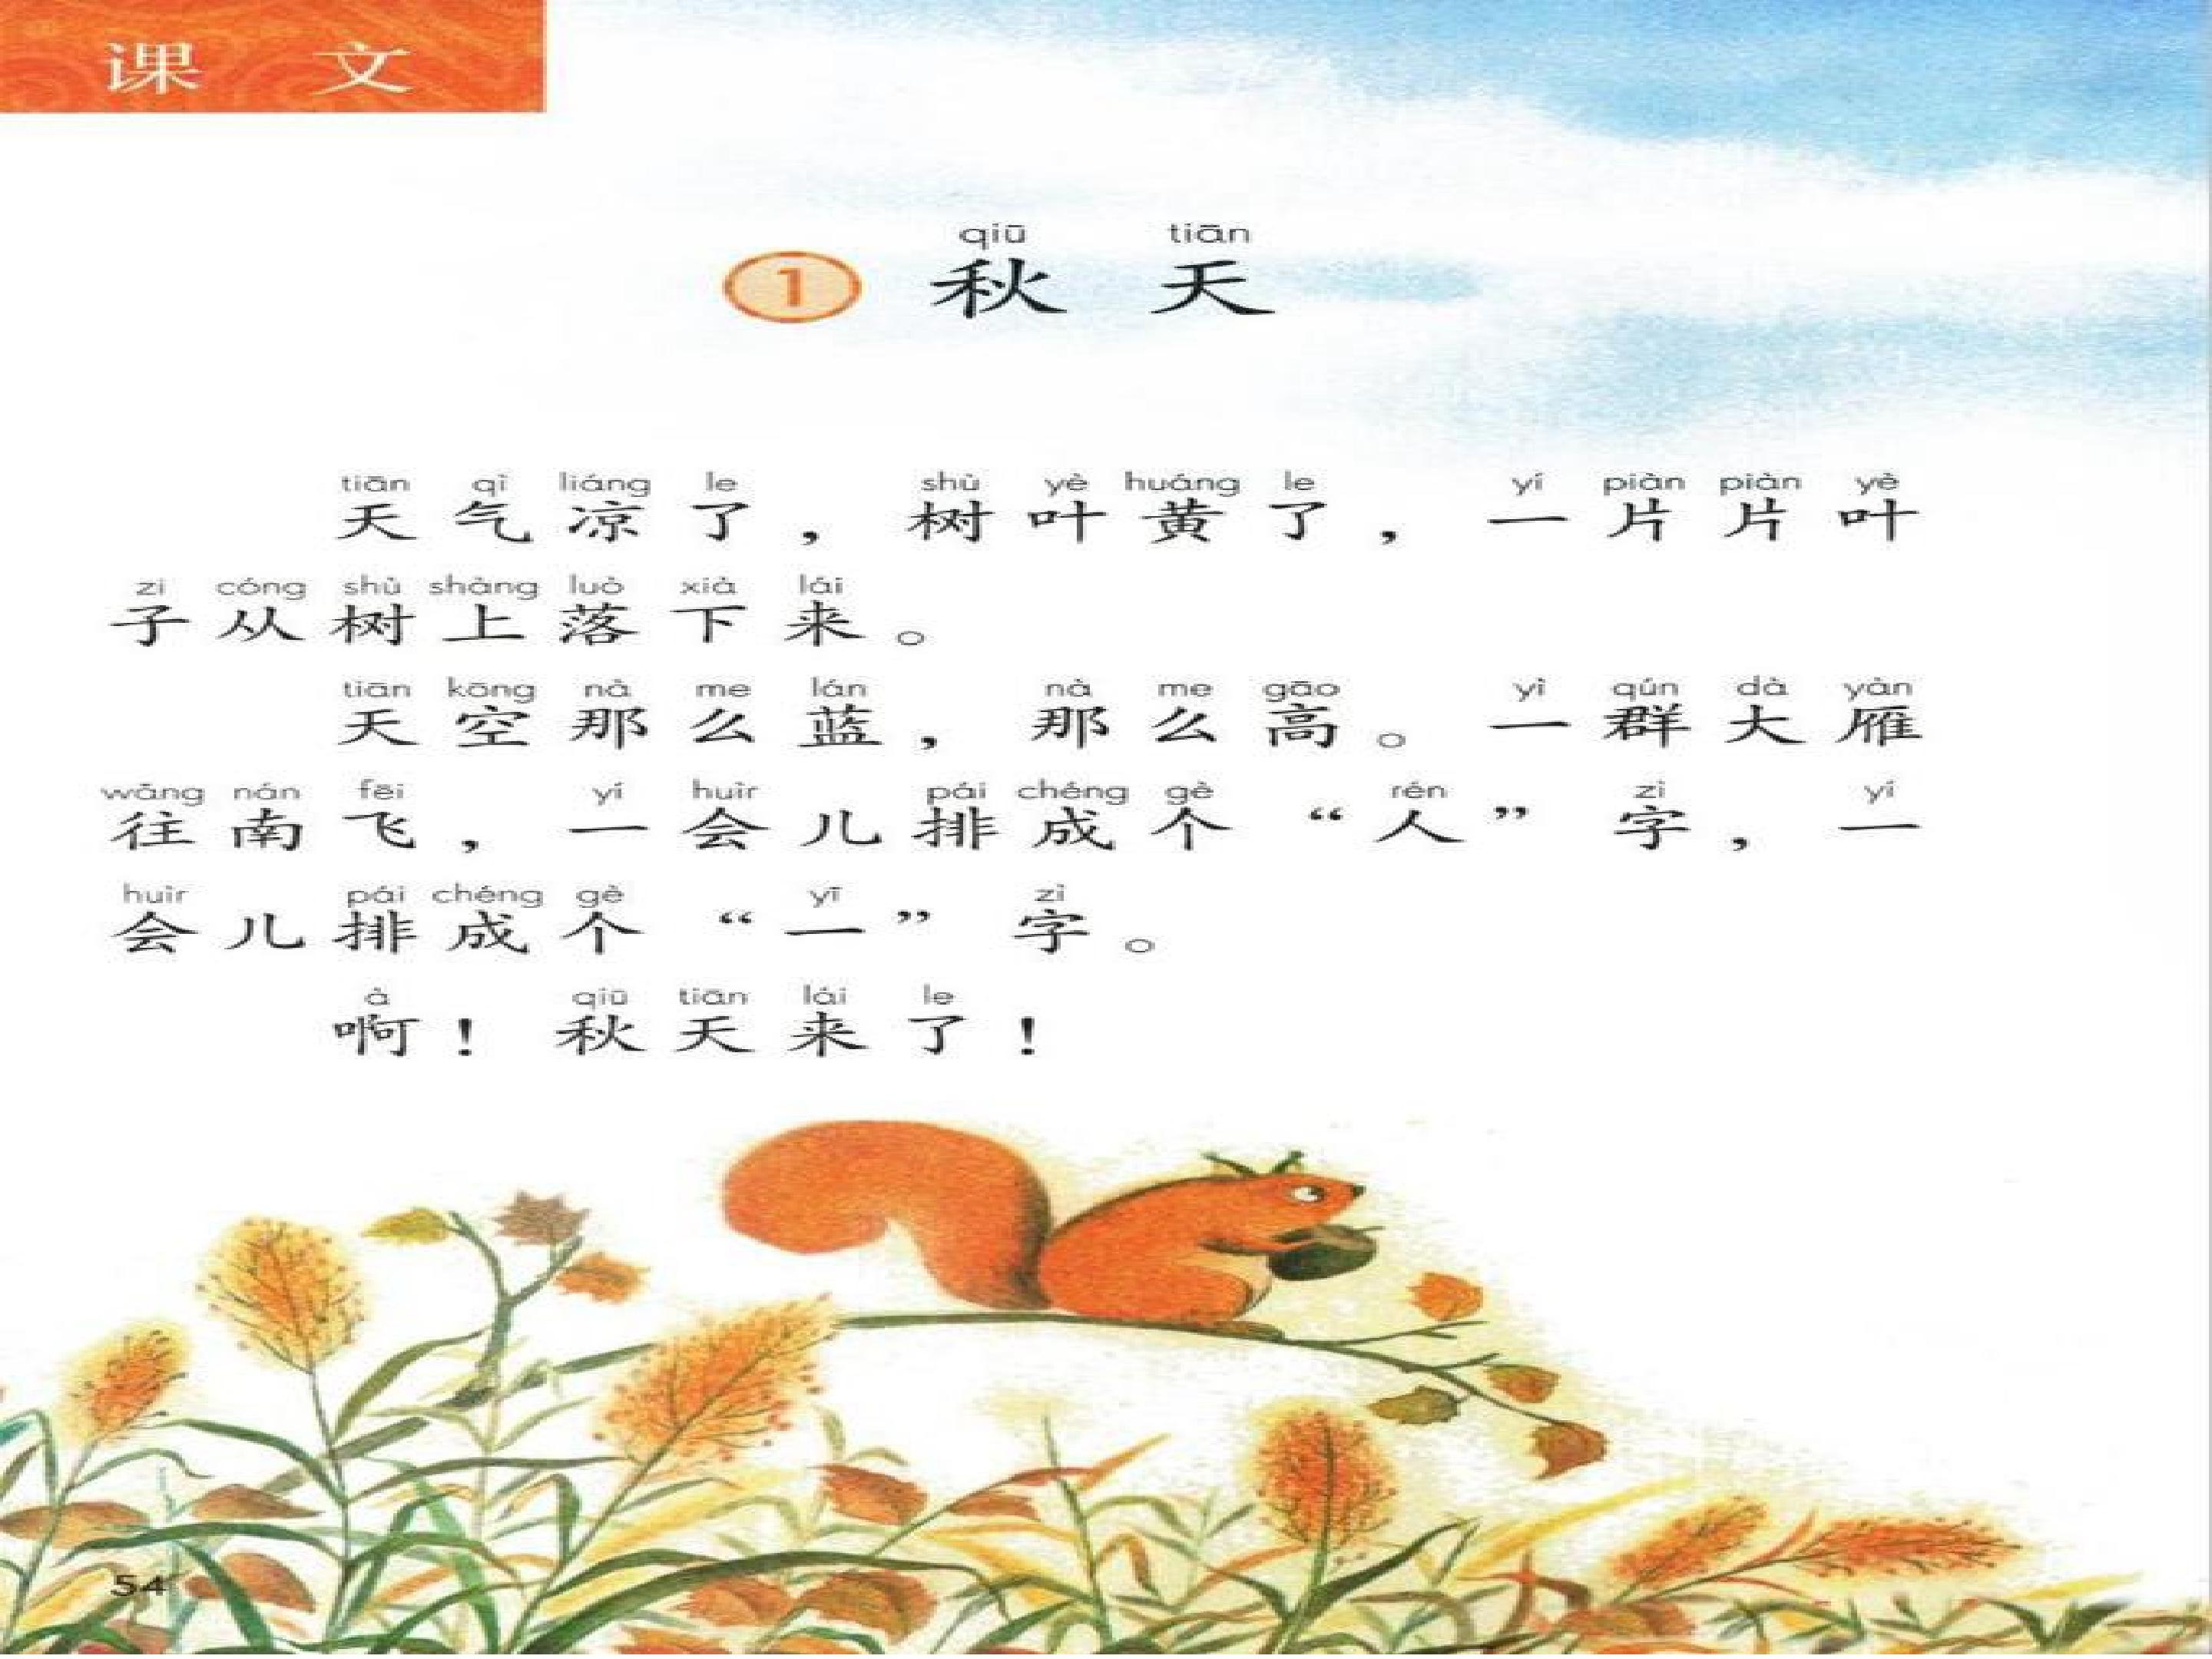 课 文
qiū tiān
1 秋 天
tiān qì liáng le shù yè huáng le yí piàn piàn yè
天气凉了，树叶黄了，一片片叶
zi cóng shù shàng luò xià lái
子从树上落下来。
tiān kōng nà me lán nà me gāo yì qún dà yàn
天空那么蓝，那么高。一群大雁
wǎng nán fēi yí huìr pái chéng gè rén zì yí
往南飞，一会儿排成个“人”字，一
huìr pái chéng gè yī zì
会儿排成个“一”字。
à qiū tiān lái le
啊！秋天来了！
54